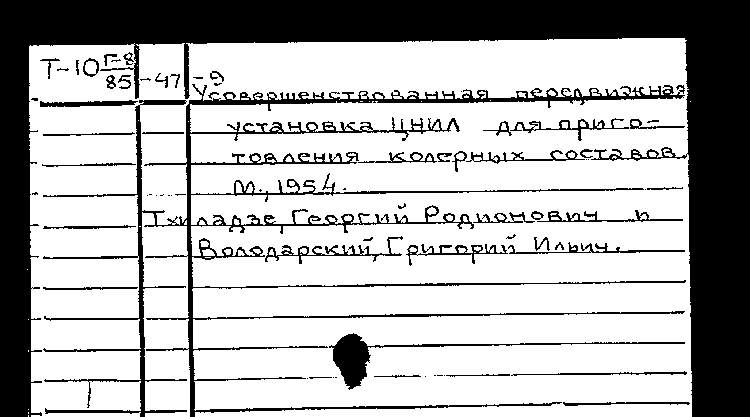 Т-10 Г-8/85 -47 -9
Усовершенствованная передвижная
установка ЦНИЛ для приго-
товления колерных составов.
М., 1954.
Тхиладзе, Георгий Родионович и
Володарский, Григорий Ильич.